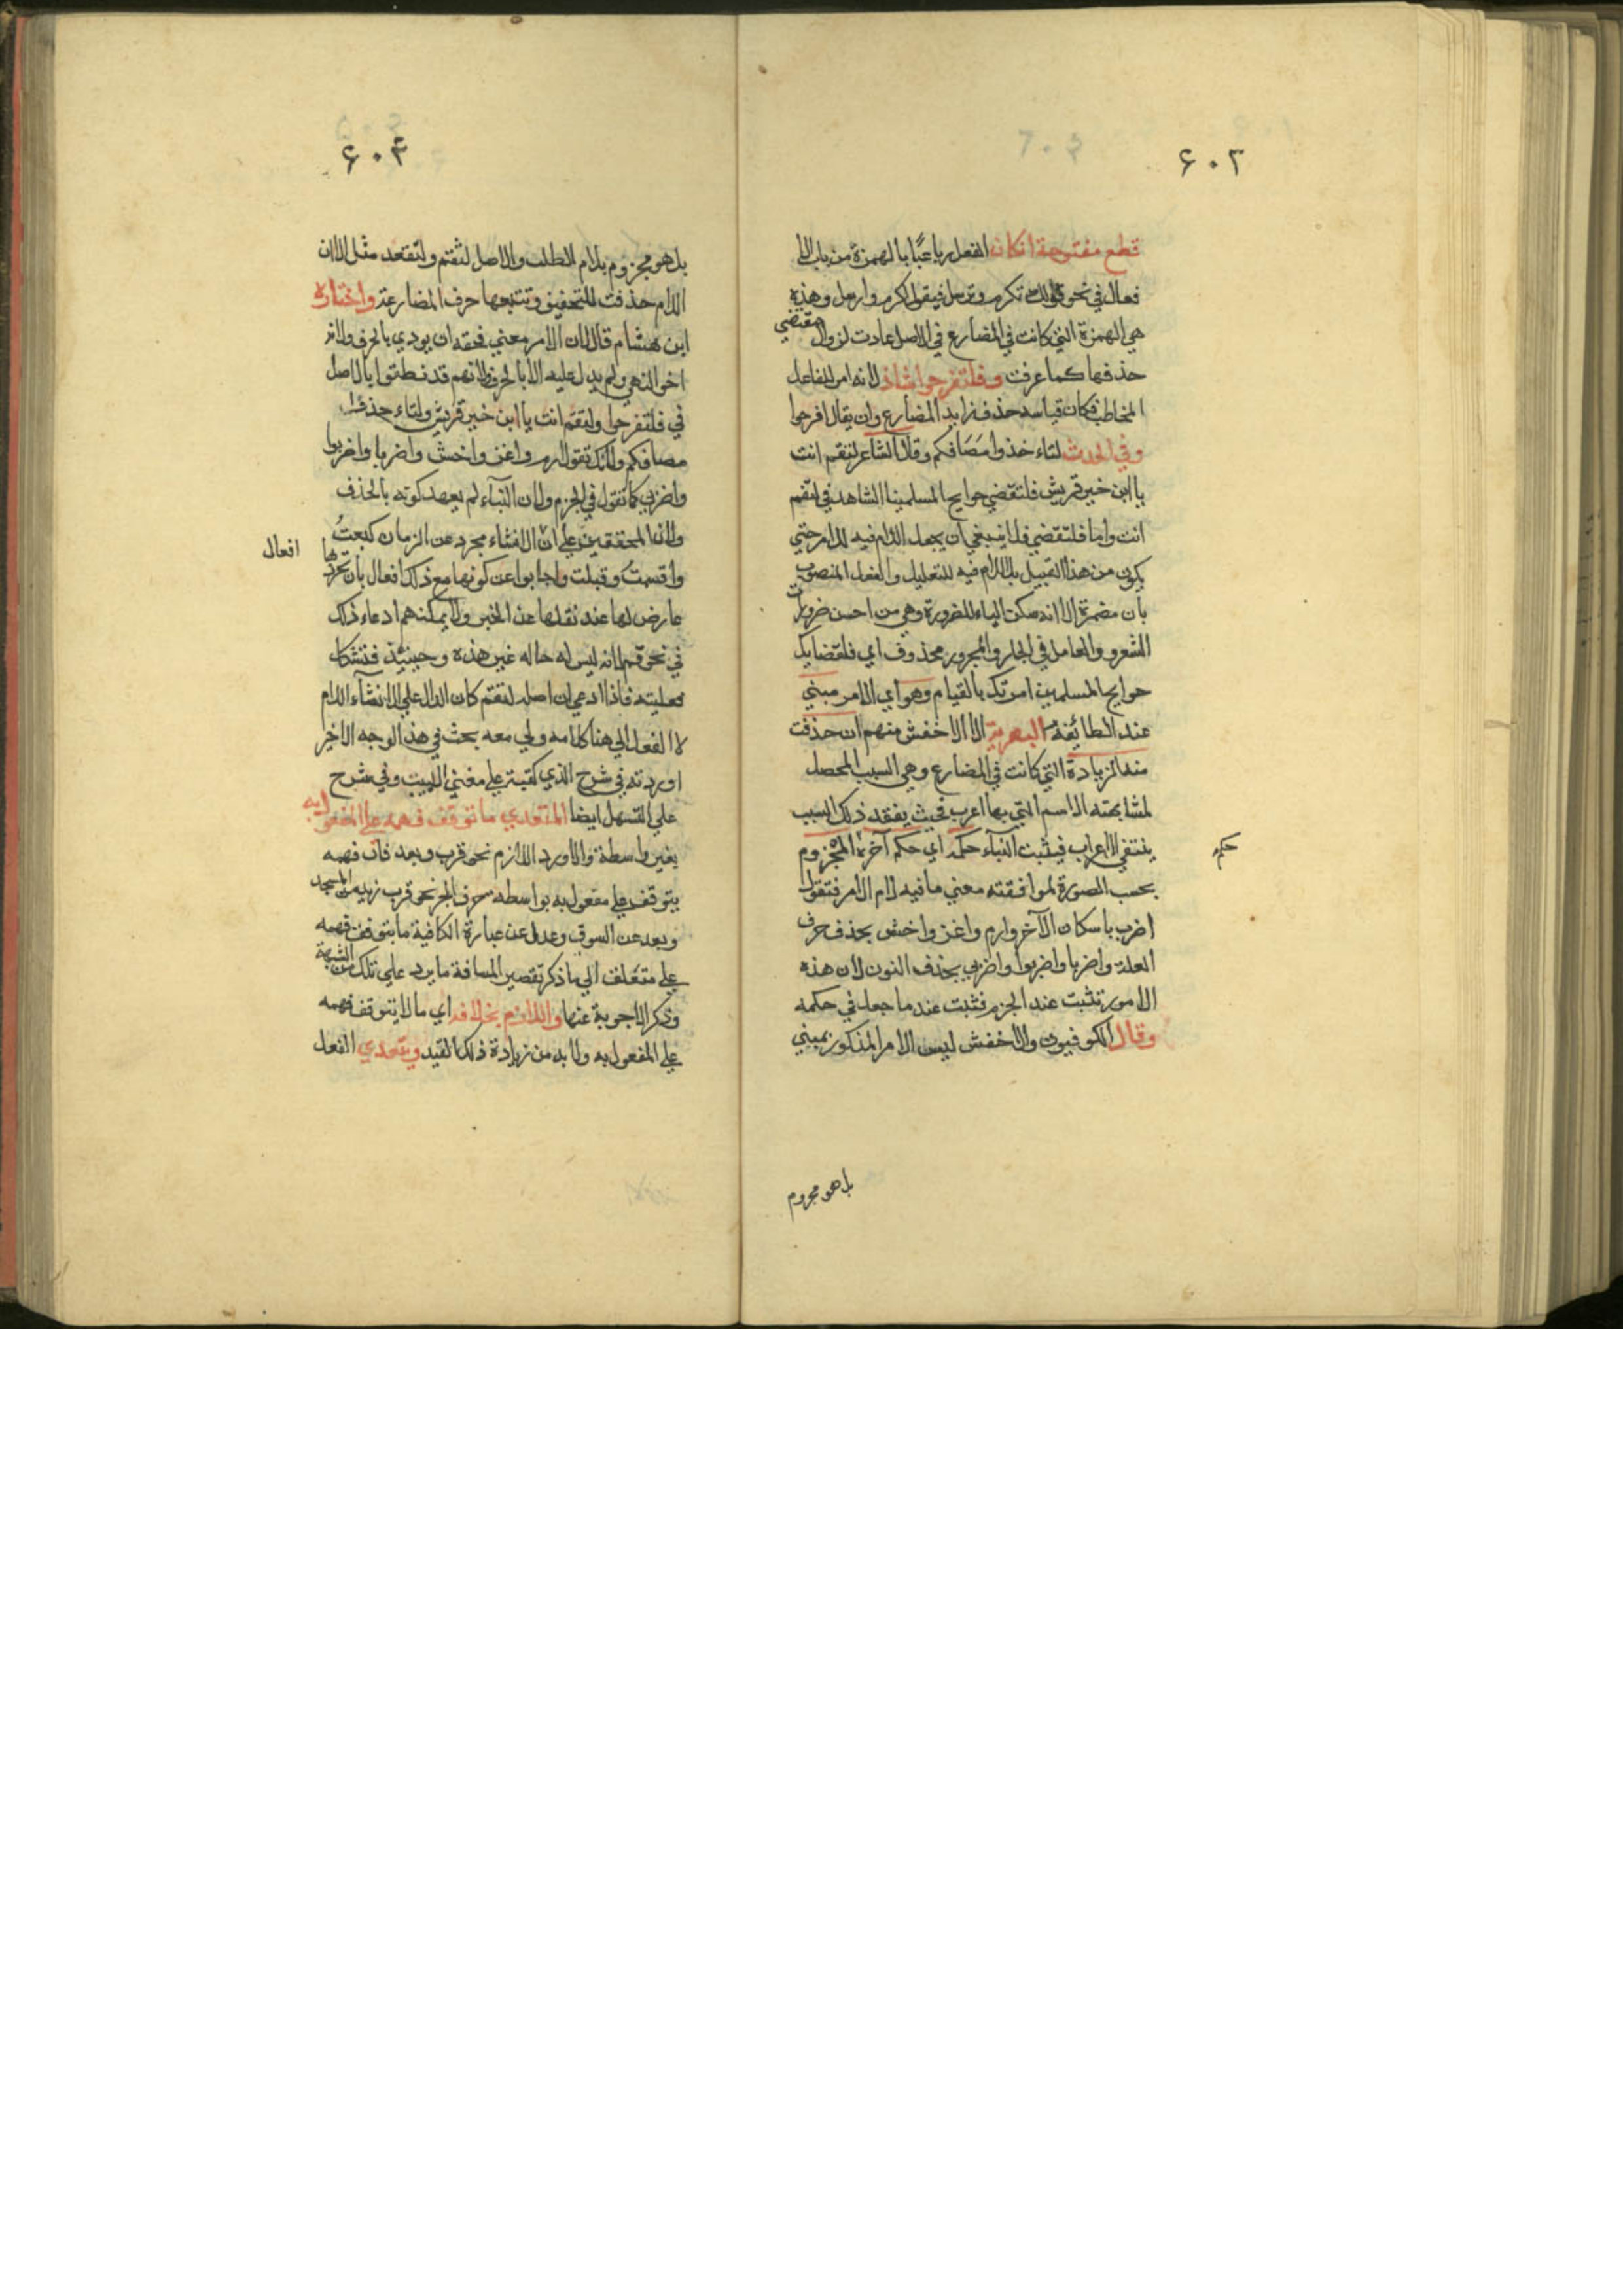 ٦٠٢
قطع مفتوحة ان كان الفعل رباعيًا بالهمزة من باب الا
فعال في نحو قولك تكرم وترسل فيقول اكرم وارسل وهذه
هي الهمزة التي كانت في المضارع في الاصل عادت لزوال مقتضي
حذفها كما عرفت وفلتفرحوا شاذ لانه امر للفاعل
المخاطب فكان قياسه حذف زايد المضارع وان يقال افرحوا
وفي الحدث لتاء خذوا مَصَافكم وقال الشاعر لتقم انت
يا ابن خير قريش فلتقضي حوايج المسلمينا الشاهد في لتقم
انت واما فلتقضي فلا ينبغي ان يجعل اللام فيه للامر حتي
يكون من هذا القبيل بل اللام فيه للتعليل والفعل المنصوب
بان مضمرة الا انه سكن الياء للضرورة وهي من احسن ضرورات
الشعر والعامل في الجار والمجرور محذوف اي فلقضايك
حوايج المسلمين امرتك بالقيام وهو اي الامر مبني
عند الطائفة البصرية الا الاخفش منهم ان حذفت
منه الزيادة التي كانت في المضارع وهي السبب المحصل
لمشابهته الاسم التي بها اعرب فحيث يفقد ذلك السبب
ينتفي الاعراب فيثبت البناء حكمه اي حكم آخره المجزوم
حكم
بحسب الصورة لموافقته معني ما فيه لام الامر فتقول
اضرب باسكان الآخر وارم واغز واخش بحذف حرف
العلة واضربا واضربوا واضربي بحذف النون لان هذه
الامور تثبت عند الجزم فثبت عند ما جعل في حكمه
وقال الكوفيون والاخفش ليس الامر المذكور بمبني
بل هو مجزوم
٦٠٣
بل هو مجزوم بلام الطلب والاصل لتقم ولتقعد مثل الا ان
اللام حذفت للتخفيف وتتبعها حرف المضارعة واختاره
ابن هشام قال لان الامر معني فحقه ان يودي بالحرف ولانه
اخو النهي ولم يدل عليه الا بالحرف ولانهم قد نطقوا بالاصل
في فلتفرحوا ولتقم انت يا ابن خير قريش ولتاء خذوا
مصافكم ولانك تقول ارم واغز واخش واضربا واضربوا
واضربي كما تقول في الجزم ولان البناء لم يعهد كونه بالحذف
ولان المحققين علي ان الانشاء مجرد عن الزمان كبعتُ
واقسمت وقبلت واجابوا عن كونها مع ذلك افعال بان تجردها
افعال
عارض لها عند نقلها عن الخبر ولا يمكنهم ادعاء ذلك
في نحو قم لانه ليس له حاله غير هذه وحينئذ فتشكل
فعليته فاذا ادعي ان اصله لتقم كان الدال علي الانشاء اللام
لا الفعل الي هنا كلامه ولي معه بحث في هذ الوجه الاخير
اوردته في شرح الذي كتبته علي مغني اللبيب وفي شرح
علي التسهل ايضا المتعدي ما توقف فهمه علي المفعول به
بغير واسطة والا ورد اللازم نحو قرب وبعد فان فهمه
يتوقف علي مفعول به بواسطه حرف الجر نحو قرب زيد من المسجد
وبعد عن السوق وعدل عن عبارة الكافية ما يتوقف فهمه
علي متعلق الي ما ذكر تقصير المسافة ما يرد علي تلك من الشبهة
وذكر الاجوبة عنها واللازم بخلافه اي ما لا يتوقف فهمه
علي المفعول به ولا بد من زيادة ذلك القيد ويتعدي الفعل